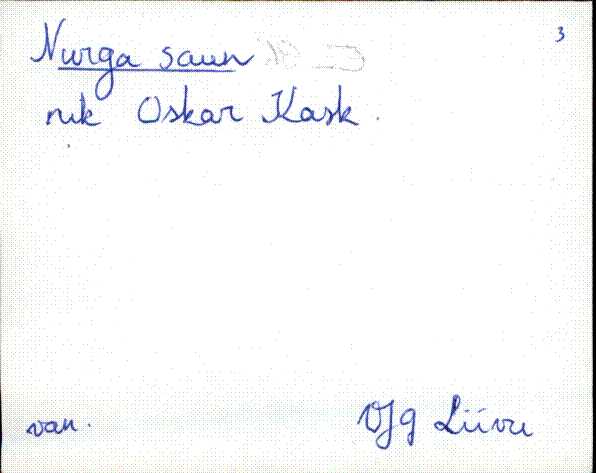 3
Nurga saun
nık Oskar Kask.
van.
VJg Liivu